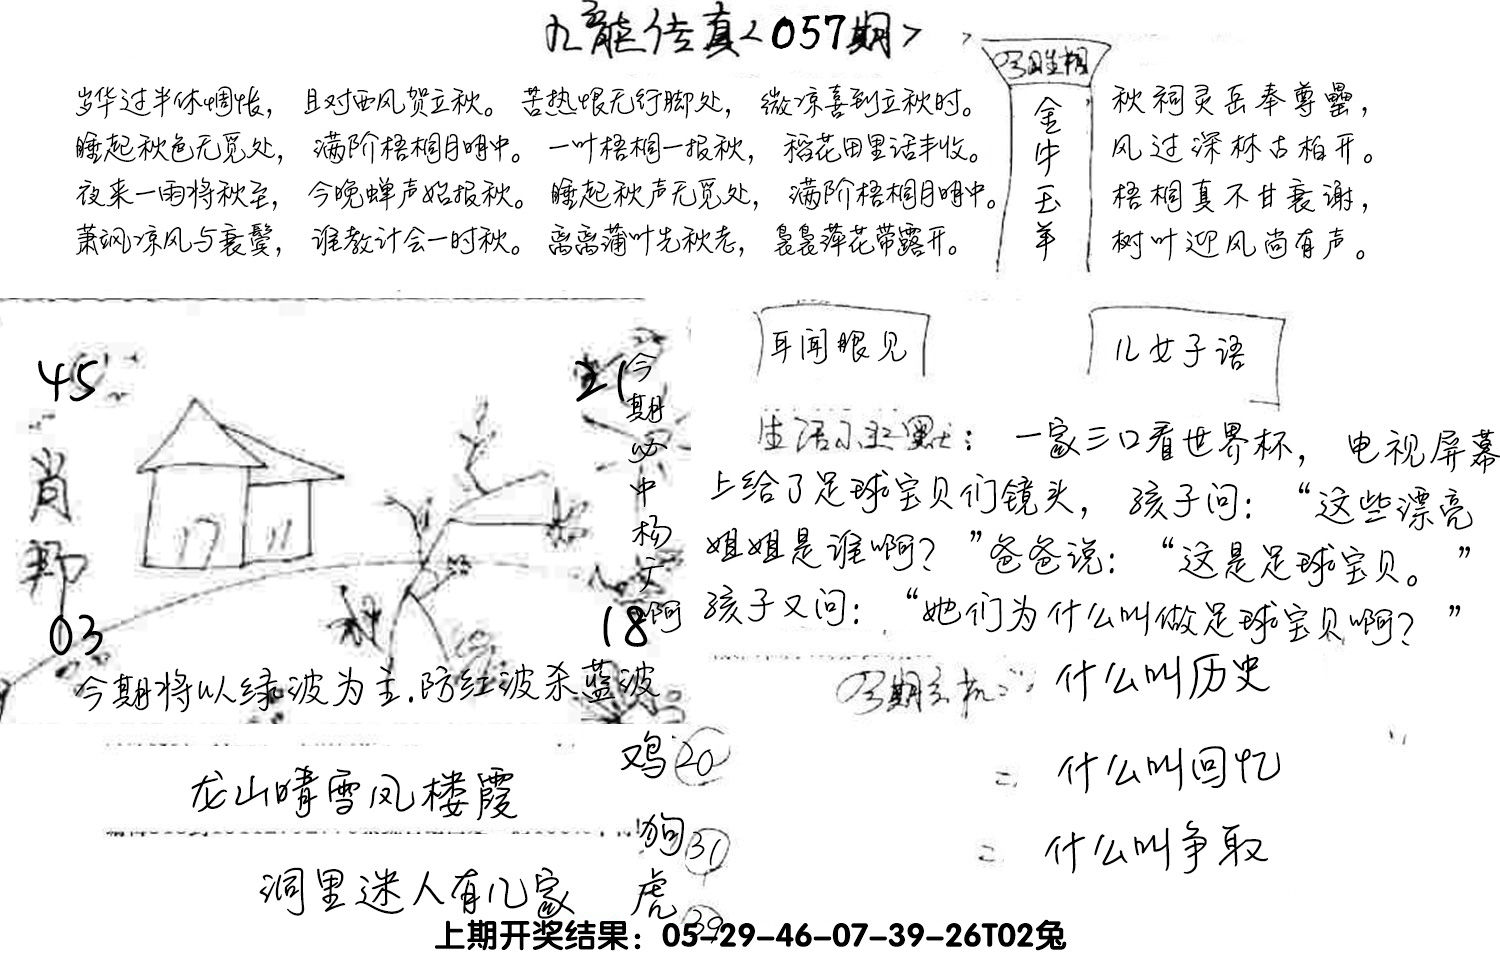 九龙传真<057期>
岁华过半休惆怅，且对西风贺立秋。苦热恨无行脚处，微凉喜到立秋时。
睡起秋色无觅处，满阶梧桐月明中。一叶梧桐一报秋，稻花田里话丰收。
夜来一雨将秋至，今晚蝉声始报秋。睡起秋声无觅处，满阶梧桐月明中。
萧飒凉风与衰鬓，谁教计会一时秋。离离蒲叶先秋老，袅袅萍花带露开。
金牛玉羊
秋祠灵岳奉尊罍，
风过深林古柏开。
梧桐真不甘衰谢，
树叶迎风尚有声。
45
21
肖
03
18
今期必中杨广啊
今期将以绿波为主.防红波杀蓝波
耳闻眼见
儿女子语
生活小幽默：一家三口看世界杯，电视屏幕
上给了足球宝贝们镜头，孩子问：“这些漂亮
姐姐是谁啊？”爸爸说：“这是足球宝贝。”
孩子又问：“她们为什么叫做足球宝贝啊？”
什么叫历史
二 什么叫回忆
二 什么叫争取
龙山晴雪凤楼霞
洞里迷人有几家
鸡 20
狗 31
虎 39
上期开奖结果：05-29-46-07-39-26T02兔